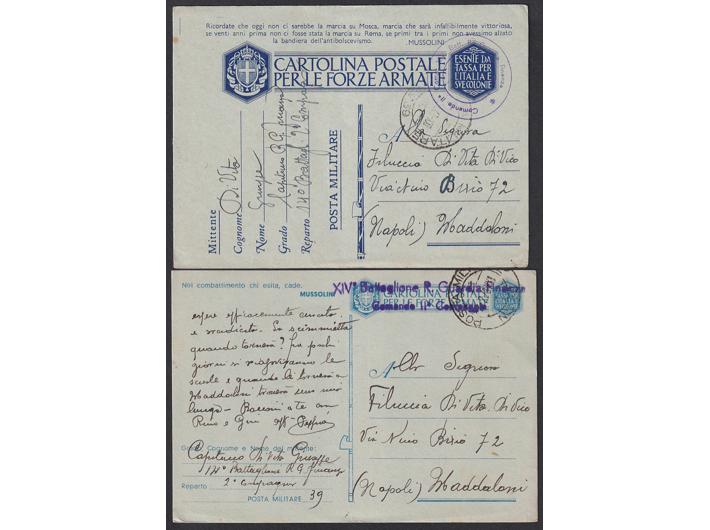 Ricordate che oggi non ci sarebbe la marcia su Mosca, marcia che sarà infallibilmente vittoriosa,
se venti anni prima non ci fosse stata la marcia su Roma, se primi tra i primi non avessimo alzato
la bandiera dell'antibolscevismo.
MUSSOLINI
CARTOLINA POSTALE
PER LE FORZE ARMATE
ESENTE DA
TASSA PER
L'ITALIA E
SVE COLONIE
Comando IIª
Mittente
Cognome Di Vita
Nome
Grado Capitano R.G.
Reparto 14º Battagl. 2ª
POSTA MILITARE
Signora
Filuccia Di Vita Di Vico
Via Nino Bixio 72
(Napoli) Maddaloni
Nel combattimento chi esita, cade.
MUSSOLINI
XIVº Battaglione R. Guardia Finanza
Comando IIª Compagnia
CARTOLINA POSTALE
PER LE FORZE ARMATE
POSTA MIL
e
quando tornerà? Fra pochi
giorni si le
scuole e quando tornerà a
Maddaloni
lungo - Bacioni a te
Rino e Gino
Grado, Cognome e Nome del mittente:
Capitano Di Vita
14º Battaglione R G Finanza
Reparto 2ª Compagnia
POSTA MILITARE 39
Alla Signora
Filuccia Di Vita Di Vico
Via Nino Bixio 72
(Napoli) Maddaloni